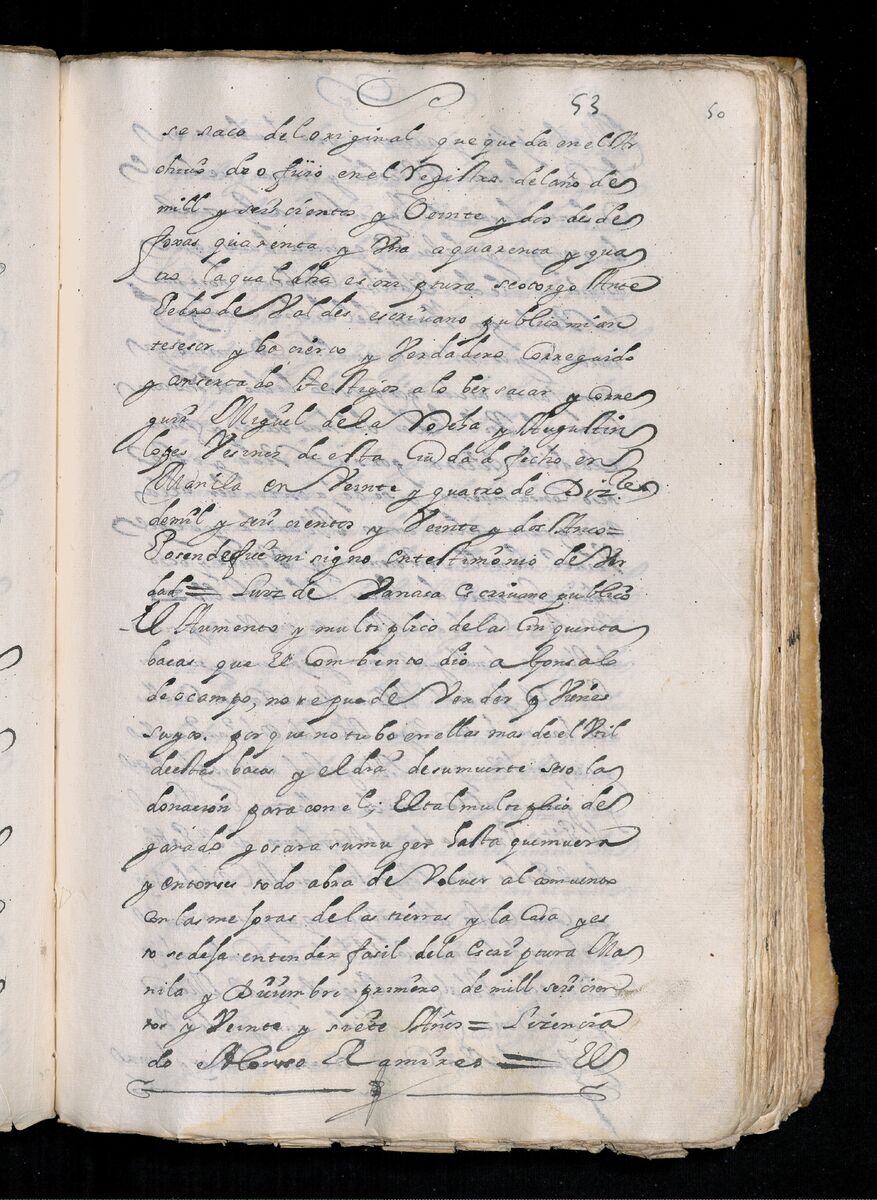 53
50
se saco del original que queda en el Ar
chiuo de ofiçio en el Rejistro del año de
mill y seis cientos y Veinte y dos desde
foxas quarenta y Una a quarenta y qua
tro la qual dha escriptura se otorgo Ante
Pedro de Valdes escriuano publico mi an
tesesor y ba cierto y Verdadero Correguido
y consertado testigos a lo ber sacar y corre
guir Miguel de la y Augustin
lopes Vesinos de esta Ciudad fecho en
Manila en Veinte y quatro de Diz.re
de mil y seis cientos y Veinte y dos Años =
E por ende fise mi signo en testimonio de Ver
dad = Luiz de Escriuano publico
El Aumento y multiplico de las Cinquenta
bacas que El Combento dio a Gonsalo
de ocampo, no se puede Vender por Vienes
suyos. porque no tubo en ellas mas de el Util
de estas bacas y el dia de su muerte seso la
donaçion para con el; El tal multiplico se
parado gosara su muger hasta que muera
y entonses todo abra de Volver al comuento
con las mejoras de las tierras y la Casa y es
to se deja entender fasil de la Escriptura Ma
nila y Disiembre primero de mill seis cien
tos y Veinte y siete Años = Licencia
do Alonso Ramires = El